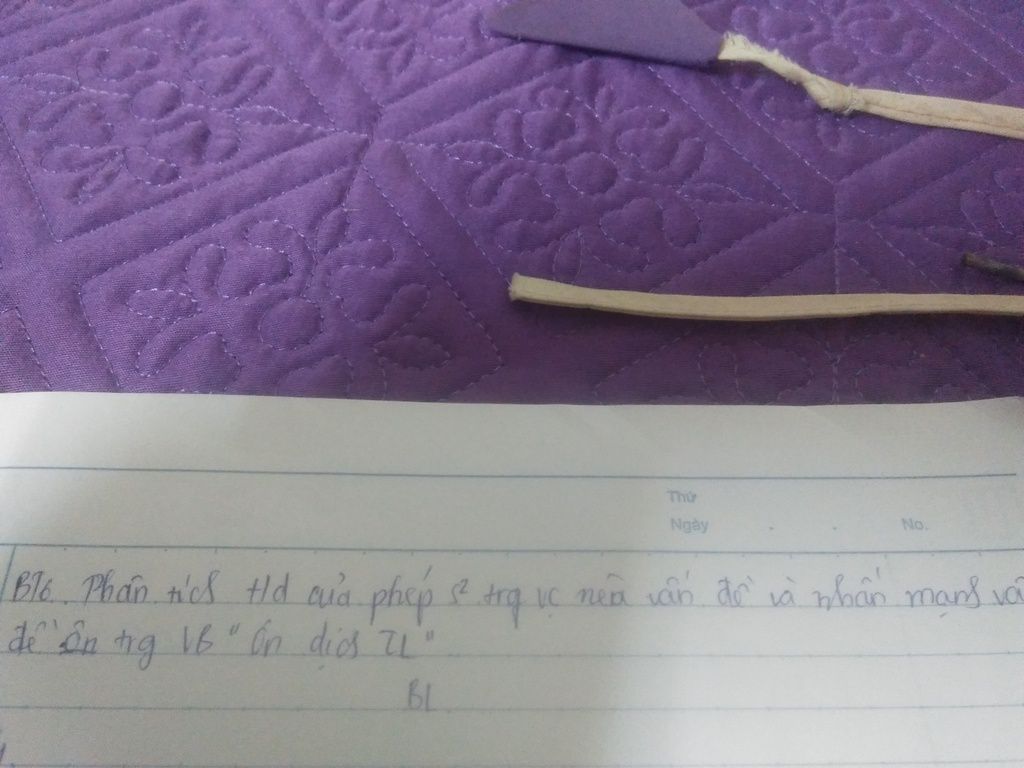 Thứ
Ngày . . No.
BT6. Phân tích t/d của phép s² trg vc nêu vấn đề và nhấn mạnh vấ
đề ôn trg VB " Ôn dịch TL"
BL